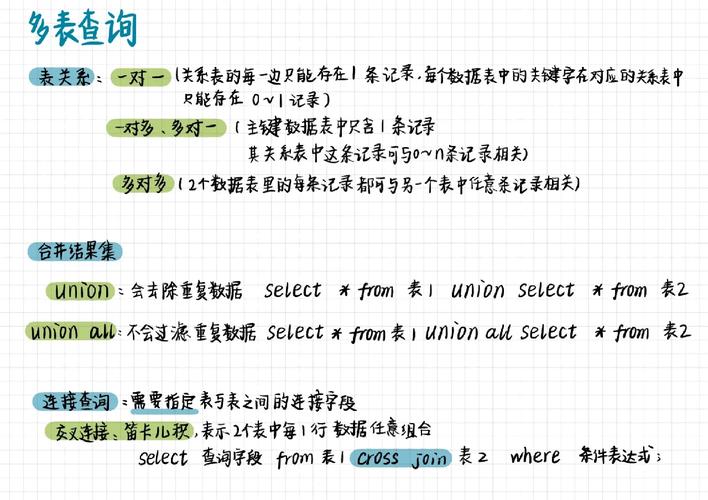 多表查询
表关系：一对一（关系表的每一边只能存在1条记录，每个数据表中的关键字在对应的关系表中
只能存在 0~1记录）
一对多、多对一（主键数据表中只含1条记录
其关系表中这条记录可与0~n条记录相关）
多对多（2个数据表里的每条记录都可与另一个表中任意条记录相关）
合并结果集
union：会去除重复数据 select * from 表1 union select * from 表2
union all：不会过滤重复数据 select * from 表1 union all select * from 表2
连接查询：需要指定表与表之间的连接字段
交叉连接：笛卡儿积，表示2个表中每1行数据任意组合
select 查询字段 from 表1 cross join 表2 where 条件表达式；